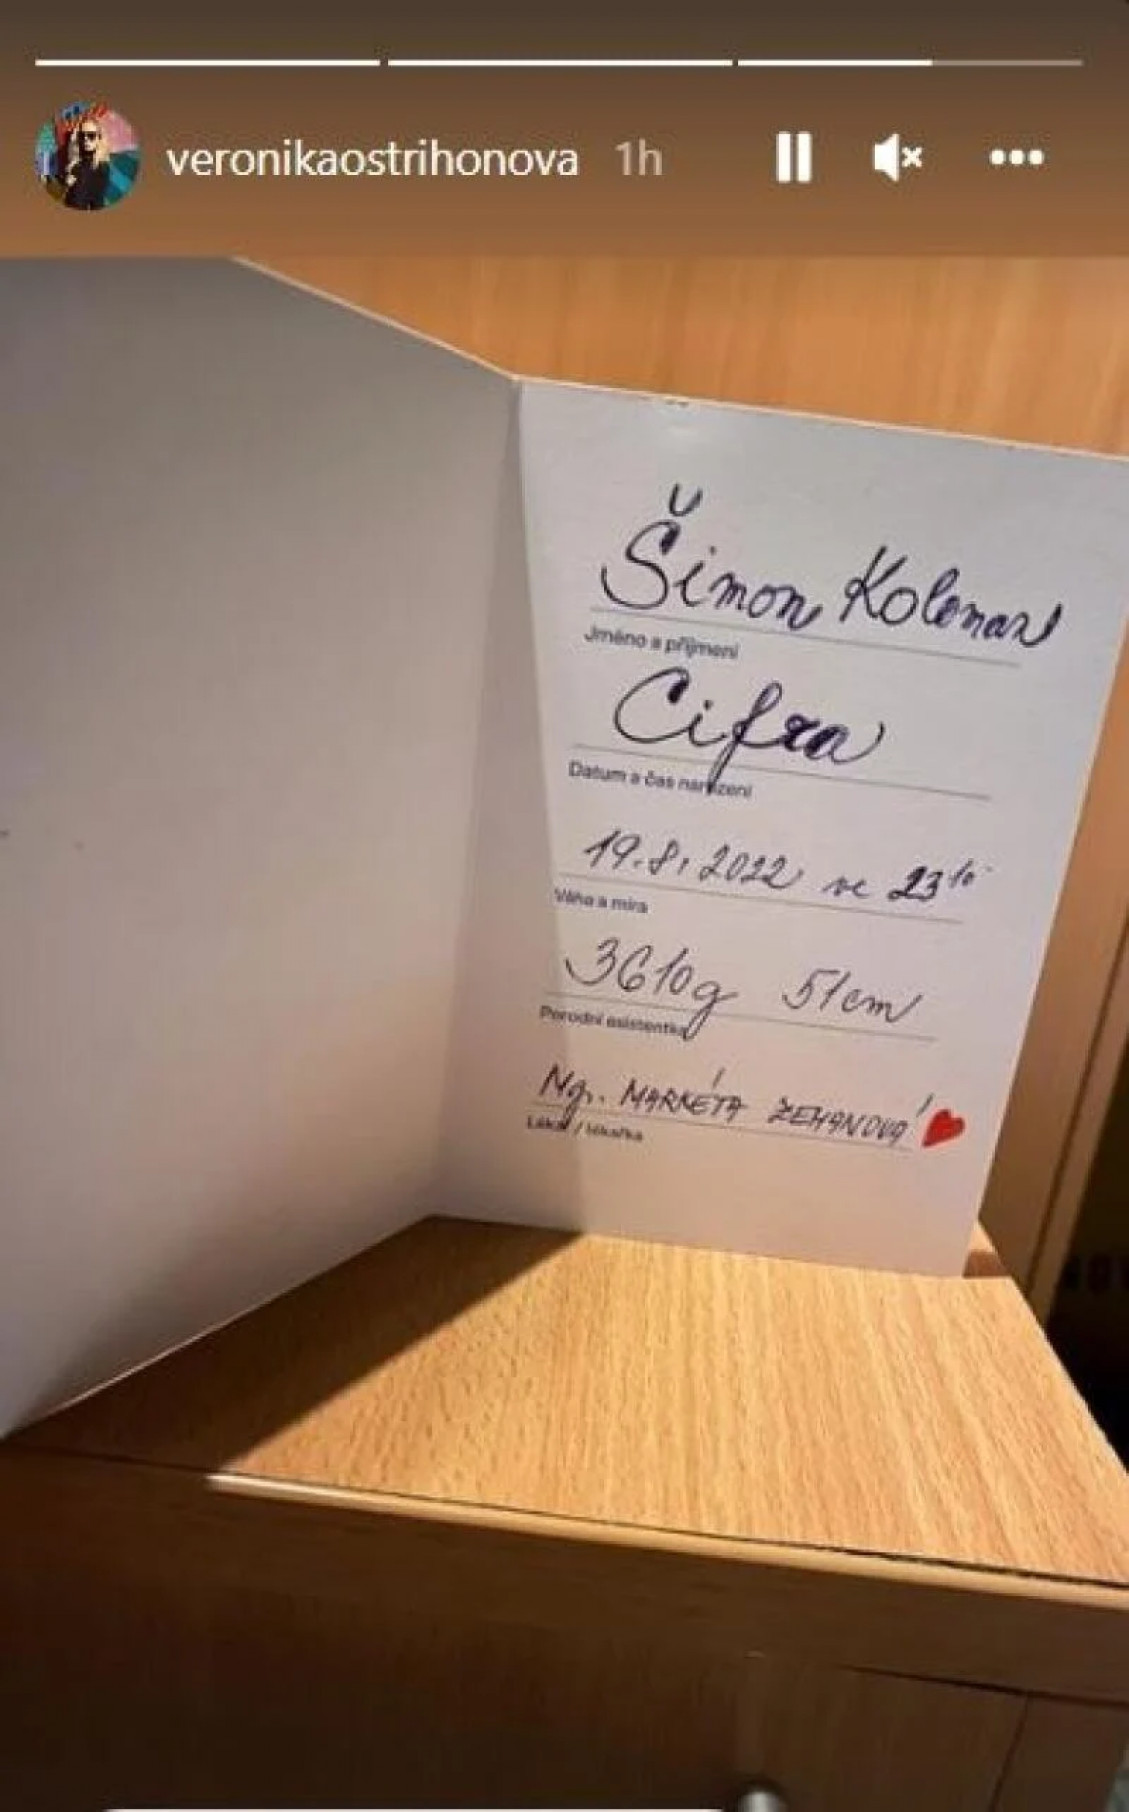 veronikaostrihonova 1h
Šimon Koloman
Jméno a příjmení
Cifra
Datum a čas narození
19.8.2022 ve 23 10
Váha a míra
3610g 51cm
Porodní asistentka
Mgr. MARKÉTA ZEMANOVÁ
Lékař / lékařka